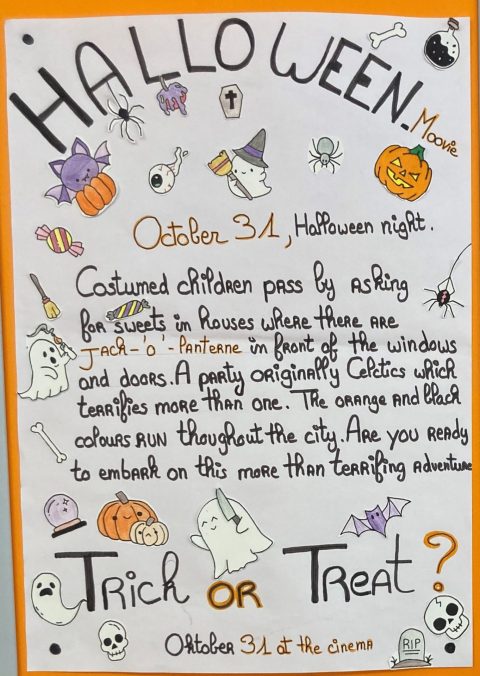 HALLOWEEN-
Moovie
October 31, Halloween night.
Costumed children pass by asking
for sweets in houses where there are
JACK-'O'-Lanterne in front of the windows
and doors. A party originally Celtics which
terrifies more than one. The orange and black
colours run thoughout the city. Are you ready
to embark on this more than terrifing adventure
Trick or Treat ?
Oktober 31 at the cinema
RIP